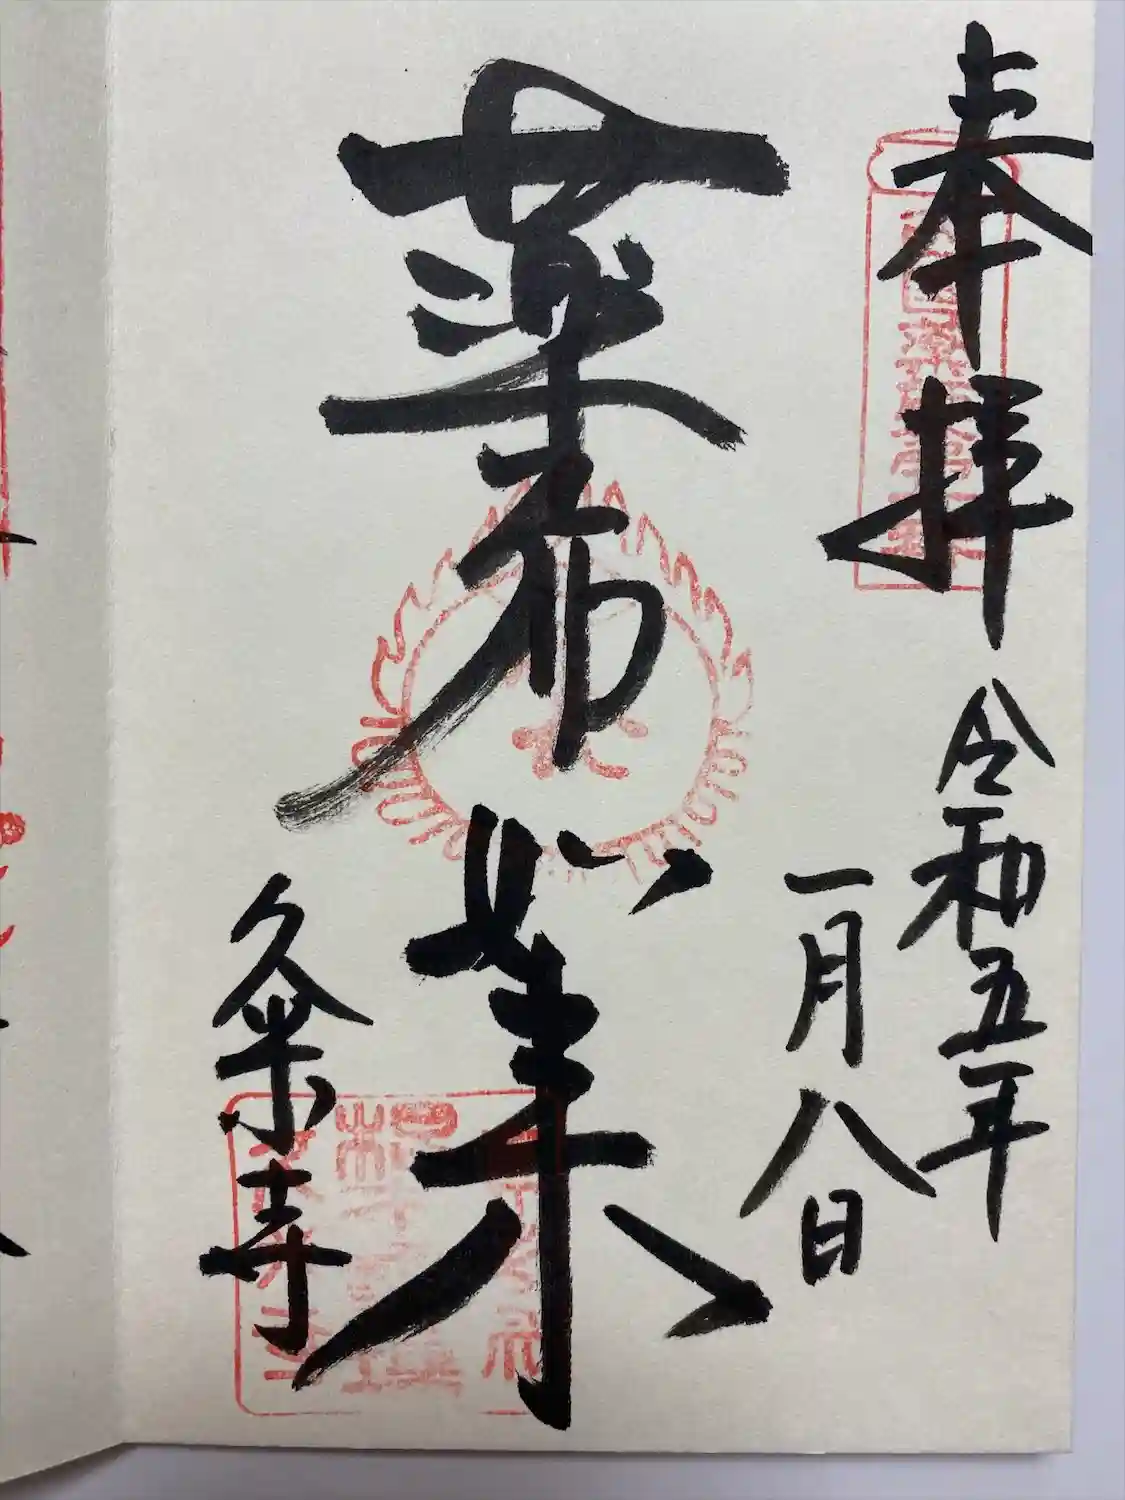 奉拝 令和五年
一月八日
薬師如来
久米寺